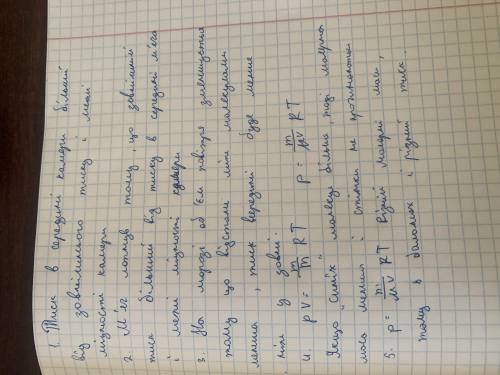 1. Тиск в середині камери більший
від зовнішнього тиску і межі
міцності камери
2. М'яч лопнув тому, що зовнішній
тиск більший від тиску в середині м'яча
і межі міцності камери
3. На морозі об'єм повітря зменшується
тому що відстань між молекулами
менша, тиск всередині буде менше
ніж у зовні.
4. pV = m/M RT p = m/MV RT
Якщо "синіх" молекул більше, тоді молярна
маса менша і стінки не прогинаються
5. p = m/MV RT Різний молярні маси,
тому в балонах і різний тиск.